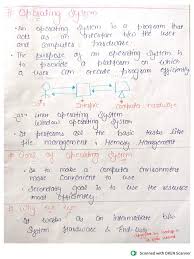 # Operating System
• An Operating System is a program that
acts as an interface between the user
and computer hardware.
• The purpose of an operating System is
to provide a platform on which
a user can execute program efficiently
User
Computer hardware
Linux Operating System
Window Operating System
• It performs all the basic tasks like
file management, Memory Management
# Goals of Operating System
to make the Computer environment
more Convenient to use
• Secondary goal is to use the resources
in most efficient
# Why
• It works as an Intermediate b/w
System Hardware & End user
Scanned with OKEN Scanner